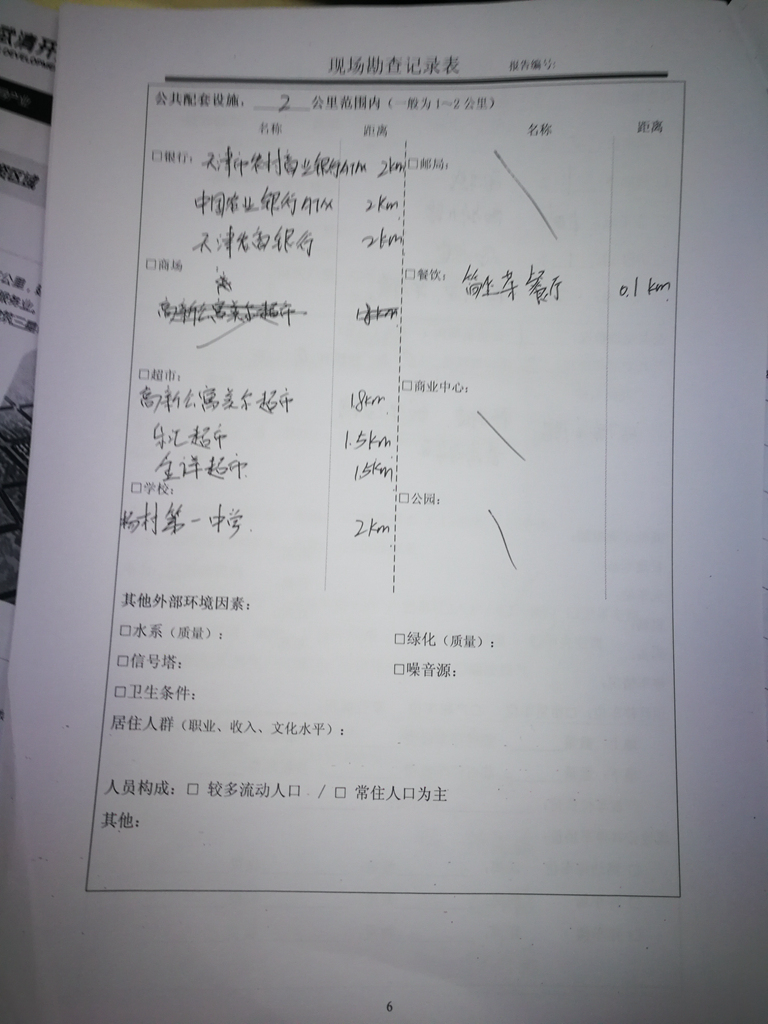 武清开
DEVELOPMEN
现场勘查记录表 报告编号:
公共配套设施, 2 公里范围内（一般为1～2公里）
名称 距离 名称 距离
□银行: 天津市农村商业银行ATM 2km □邮局:
中国农业银行ATM 2km
天津农商银行 2km
□商场 □餐饮: 餐厅 0.1km
高新公寓美尔超市 1.8km
□超市: □商业中心:
高新公寓美尔超市 1.8km
乐汇超市 1.5km
全祥超市 1.5km
□学校: □公园:
杨村第一中学 2km
其他外部环境因素:
□水系（质量）: □绿化（质量）:
□信号塔: □噪音源:
□卫生条件:
居住人群（职业、收入、文化水平）:
人员构成: □ 较多流动人口 / □ 常住人口为主
其他:
6